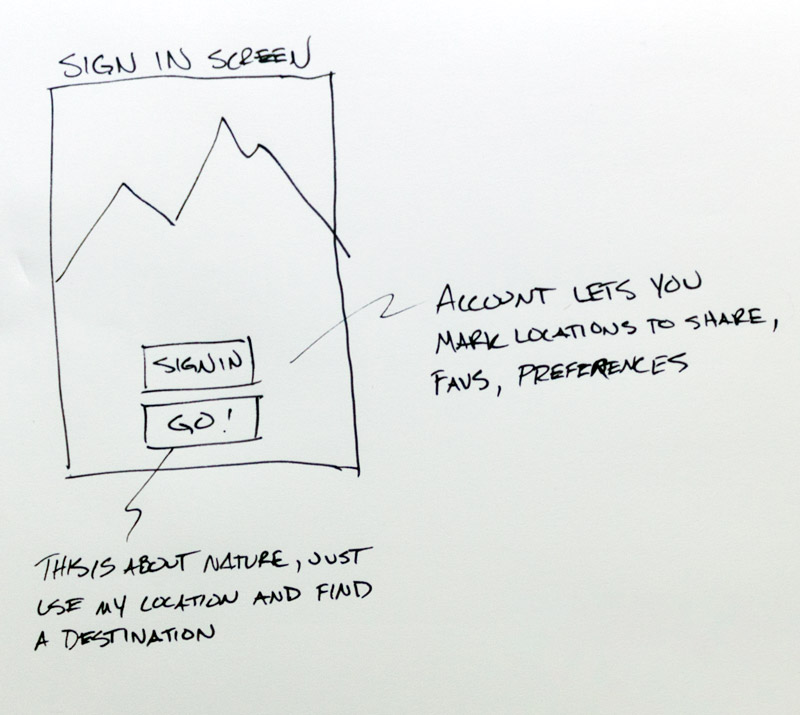 SIGN IN SCREEN
SIGN IN
GO!
ACCOUNT LETS YOU
MARK LOCATIONS TO SHARE,
FAVS, PREFERENCES
THIS IS ABOUT NATURE, JUST
USE MY LOCATION AND FIND
A DESTINATION